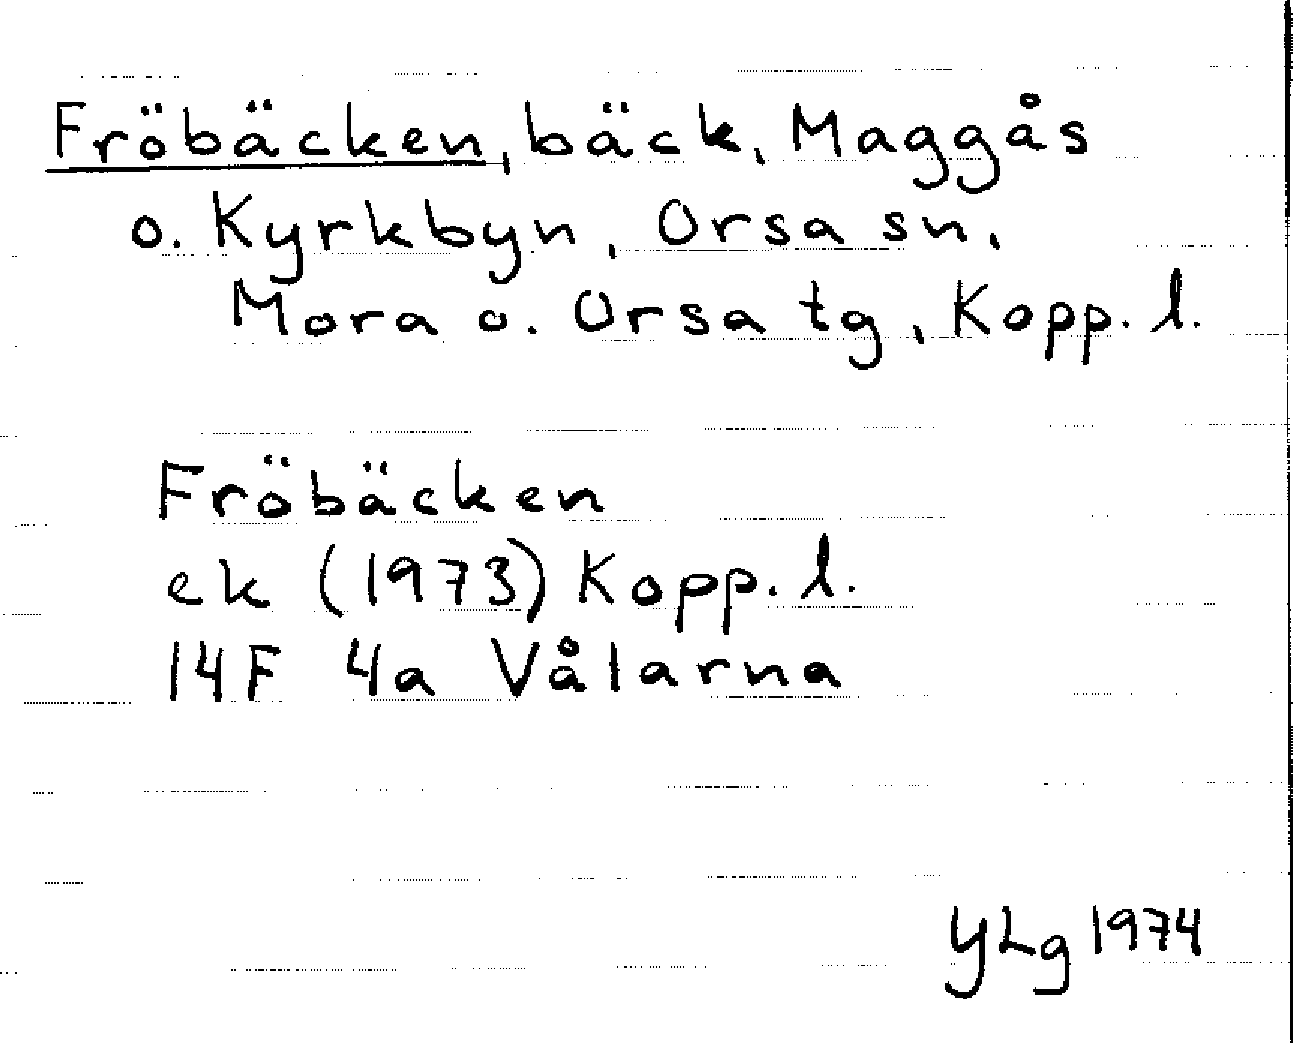 Fröbäcken, bäck, Maggås
o. Kyrkbyn, Orsa sn,
Mora o. Orsa tg, Kopp. l.
Fröbäcken
ek (1973) Kopp. l.
14F 4a Vålarna
YLg 1974